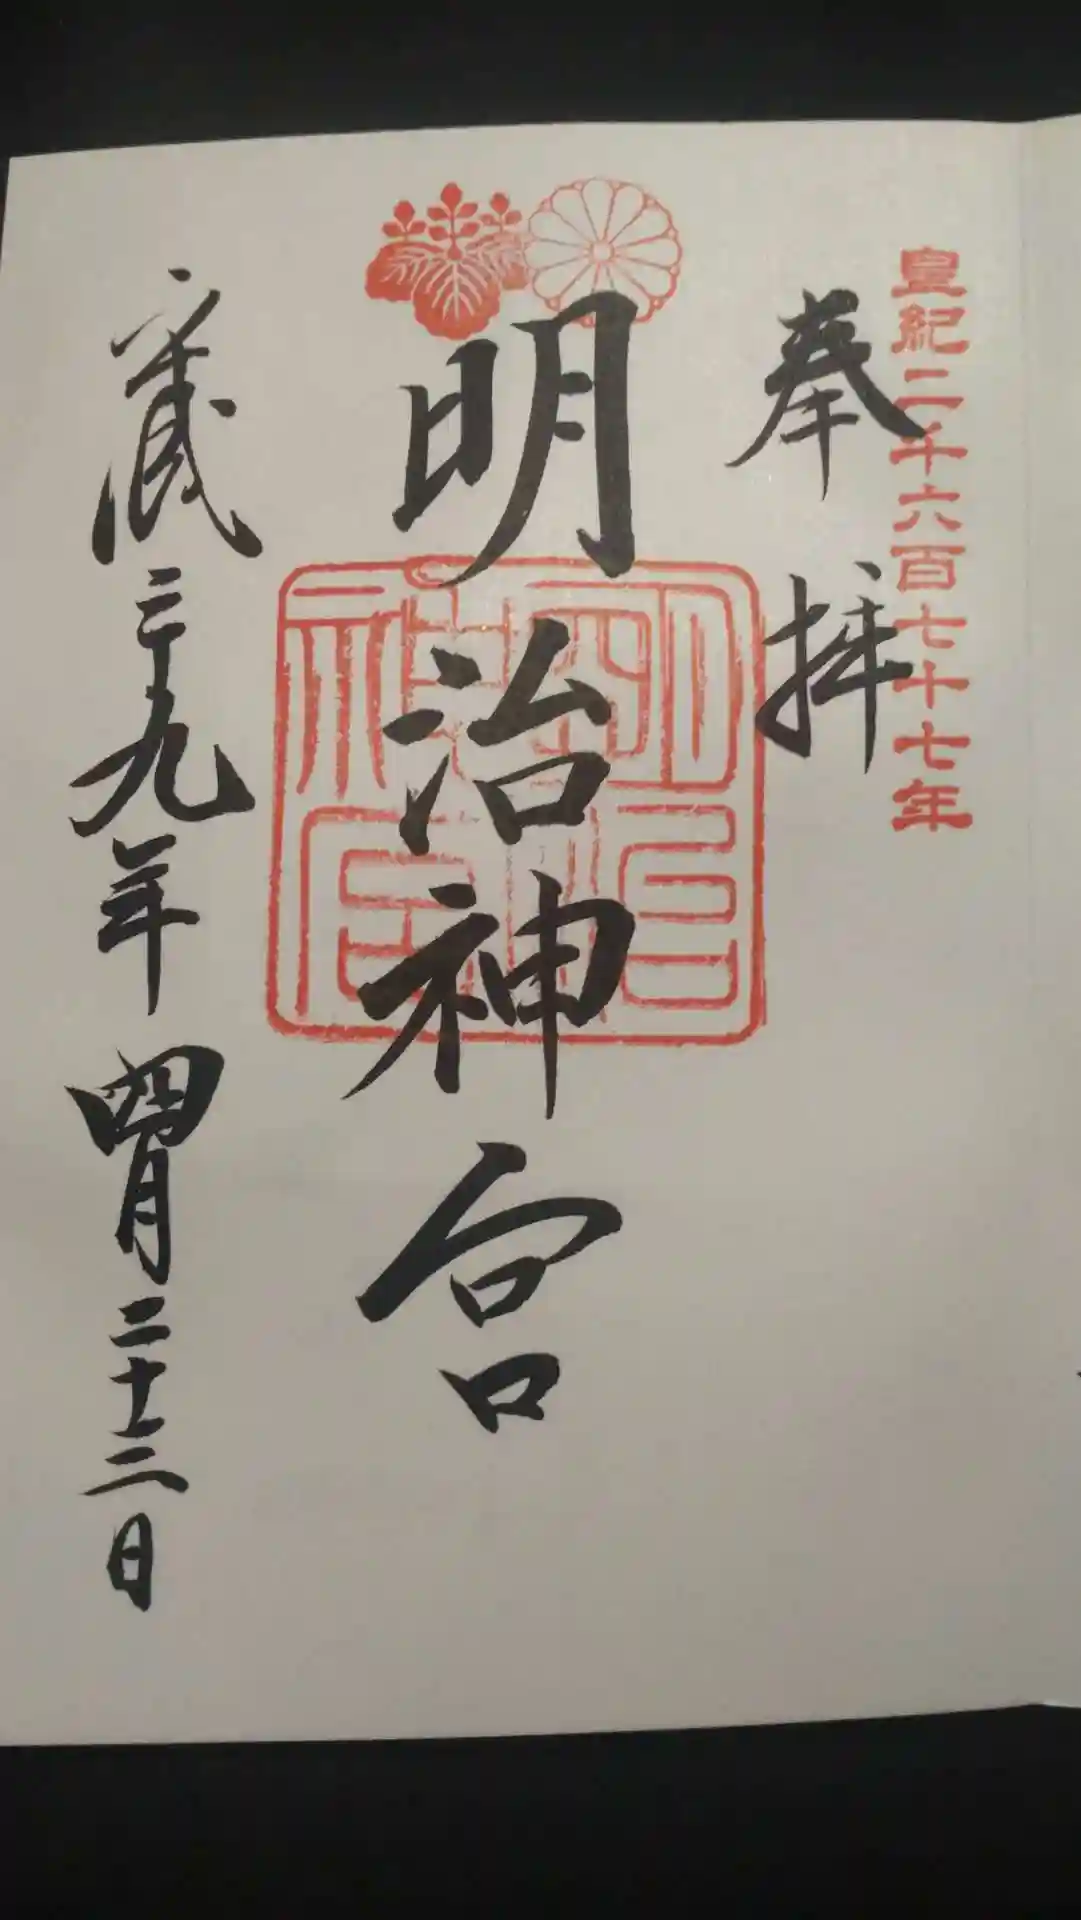 皇紀二千六百七十七年
奉拝
明治神宮
明治神宮
平成二十九年四月二十三日